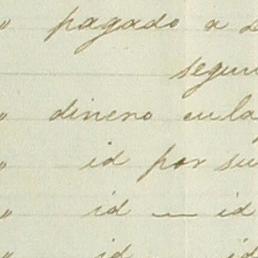 " pagado a
segun
" dinero en la
" id por su
" id — id
" id id